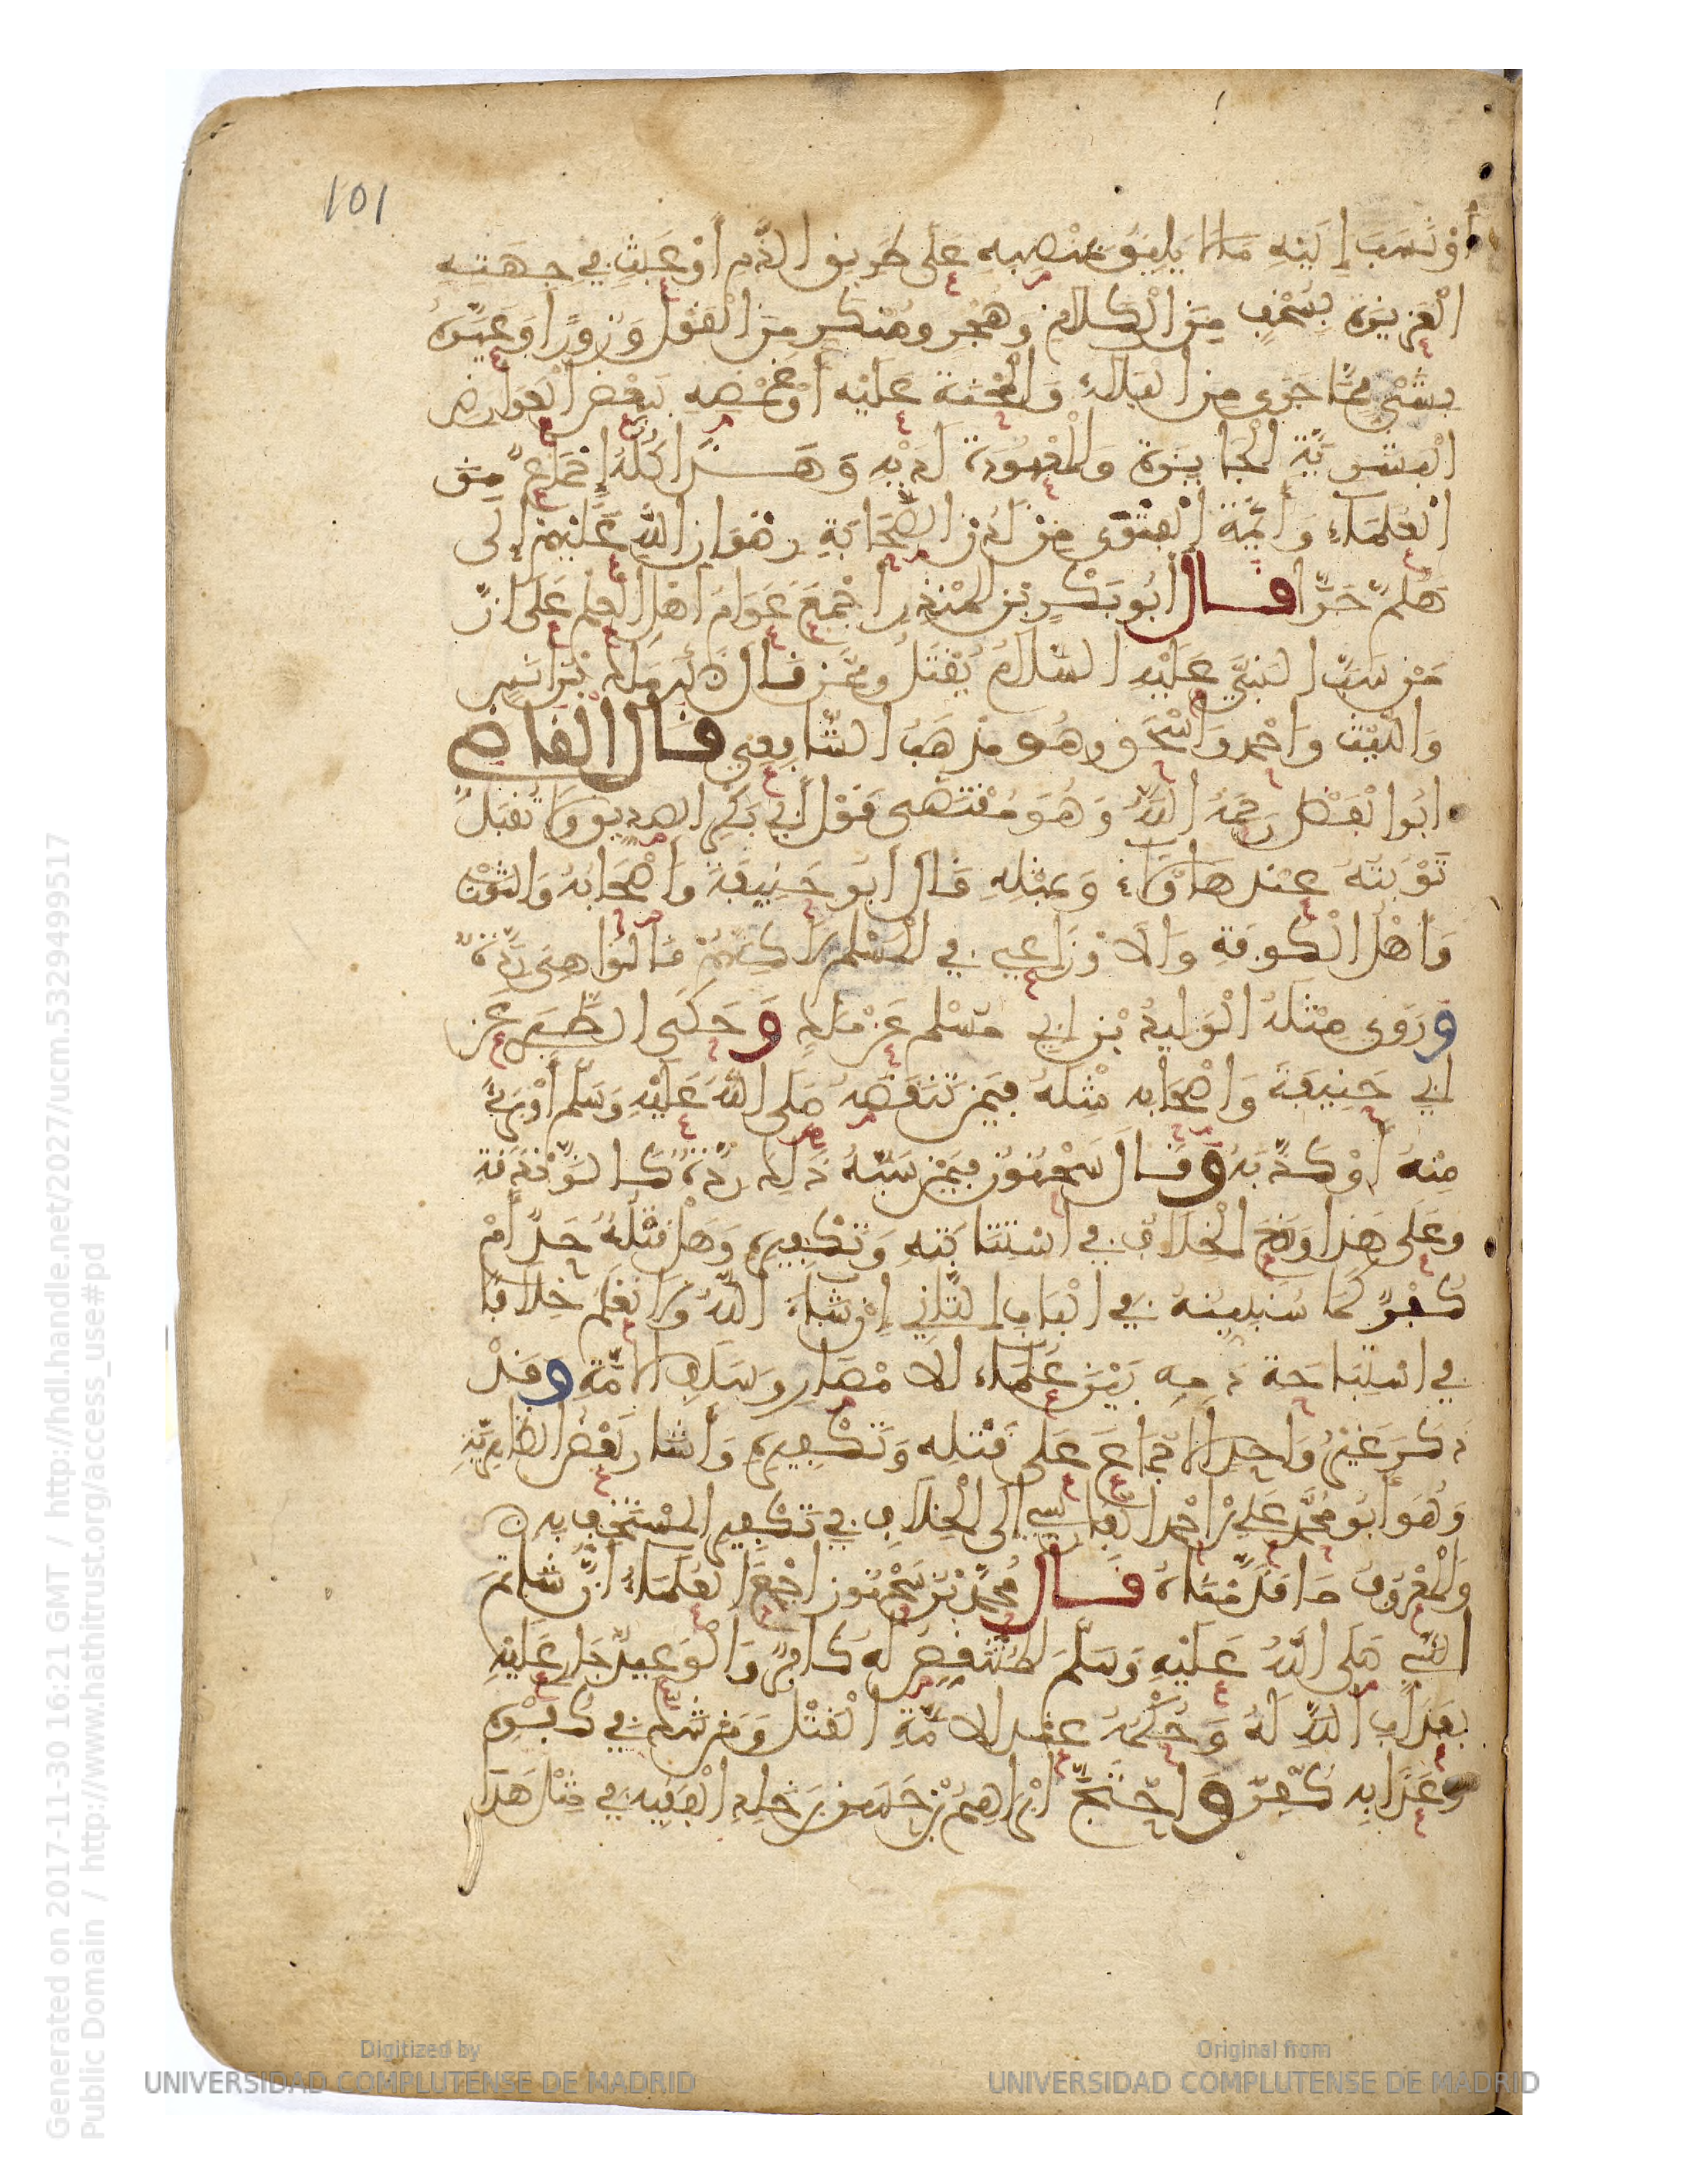 101
أَوْ نَسَبَ إِلَيْهِ مَا لَا يَلِيقُ بِمَنْصِبِهِ عَلَى طَرِيقِ الذَّمِّ أَوْ عَبِثَ فِي جِهَتِهِ
الْعَزِيزَةِ بِسُخْفٍ مِنَ الْكَلَامِ وَهُجْرٍ وَمُنْكَرٍ مِنَ الْقَوْلِ وَزُورًا وَعَيَّرَهُ
بِشَيْءٍ مِمَّا جَرَى مِنَ الْبَلَاءِ وَالْمِحْنَةِ عَلَيْهِ أَوْ غَمَصَهِ بِبَعْضِ الْعَوَارِضِ
الْبَشَرِيَّةِ الْجَايِزَةِ وَالْمَعْهُودَةِ لَدَيْهِ وَهَذَا كُلُّهُ إِجْمَاعٌ مِنَ
الْعُلَمَاءِ وَأَئِمَّةِ الْفَتْوَى مِنْ لَدُنِ الصَّحَابَةِ رِضْوَانُ اللَّهِ عَلَيْهِمْ إِلَى
هَلُمَّ جَرًّا قَالَ أَبُو بَكْرِ بْنُ الْمُنْذِرِ أَجْمَعَ عَوَامُّ أَهْلِ الْعِلْمِ عَلَى أَنَّ
مَنْ سَبَّ النَّبِيَّ عَلَيْهِ السَّلَامُ يُقْتَلُ وَمِمَّنْ قَالَ ذَلِكَ مَالِكُ بْنُ أَنَسٍ
وَاللَّيْثُ وَأَحْمَدُ وَإِسْحَقُ وَهُوَ مَذْهَبُ الشَّافِعِيِّ قَالَ الْقَاضِي
أَبُو الْفَضْلِ رَحِمَهُ اللَّهُ وَهُوَ مُقْتَضَى قَوْلِ أَبِي بَكْرٍ الصِّدِّيقِ وَلَا تُقْبَلُ
تَوْبَتُهُ عِنْدَ هَاؤُلَاءِ وَبِمِثْلِهِ قَالَ أَبُو حَنِيفَةَ وَأَصْحَابُهُ وَالثَّوْرِيُّ
وَأَهْلُ الْكُوفَةِ وَالْأَوْزَاعِي فِي الْمُسْلِمِ لَاكِنَّهُمْ قَالُوا هِيَ رِدَّةٌ
وَرَوَى مِثْلَهُ الْوَلِيدُ بْنُ أَبِي مُسْلِمٍ عَنْ مَالِكٍ وَحَكَى الطَّبَرِي عَنْ
أَبِي حَنِيفَةَ وَأَصْحَابِهِ مِثْلَهُ فِيمَنْ تَنَقَّصَهُ صَلَّى اللَّهُ عَلَيْهِ وَسَلَّمَ أَوْ بَرِئَ
مِنْهُ أَوْ كَذَّبَهُ وَقَالَ سَحْنُونُ فِيمَنْ سَبَّهُ ذَلِكَ رِدَّةٌ كَالزَّنْدَقَةِ
وَعَلَى هَذَا وَقَعَ الْخِلَافُ فِي اسْتِتَابَتِهِ وَتَكْفِيرِهِ وَهَلْ قَتْلُهُ حَدٌّ أَمْ
كُفْرٌ كَمَا سَنُبَيِّنُهُ فِي الْبَابِ الثَّانِي إِنْ شَاءَ اللَّهُ وَلَا نَعْلَمُ خِلَافًا
فِي اسْتِبَاحَةِ دَمِهِ بَيْنَ عُلَمَاءِ الْأَمْصَارِ وَسَلَفِ الْأُمَّةِ وَقَدْ
ذَكَرَ غَيْرُ وَاحِدٍ الْإِجْمَاعَ عَلَى قَتْلِهِ وَتَكْفِيرِهِ وَأَشَارَ بَعْضُ الظَّاهِرِيَّةِ
وَهُوَ أَبُو مُحَمَّدٍ عَلِيُّ بْنُ أَحْمَدَ الْفَارِسِيُّ إِلَى الْخِلَافِ فِي تَكْفِيرِ الْمُسْتَخِفِّ بِهِ
وَالْمَعْرُوفُ مَا قَدَّمْنَاهُ قَالَ مُحَمَّدُ بْنُ سَحْنُونٍ أَجْمَعَ الْعُلَمَاءُ أَنَّ شَاتِمَ
النَّبِيِّ صَلَّى اللَّهُ عَلَيْهِ وَسَلَّمَ الْمُتَنَقِّصَ لَهُ كَافِرٌ وَالْوَعِيدُ جَارٍ عَلَيْهِ
بِعَذَابِ اللَّهِ لَهُ وَحُكْمُهُ عِنْدَ الْأُمَّةِ الْقَتْلُ وَمَنْ شَكَّ فِي كُفْرِهِ
وَعَذَابِهِ كَفَرَ وَاحْتَجَّ إِبْرَاهِيمُ بْنُ حُسَيْنِ بْنِ خَالِدٍ الْفَقِيهُ فِي مِثْلِ هَذَا
Generated on 2017-11-30 16:21 GMT / http://hdl.handle.net/2027/ucm.5329499517
Public Domain / http://www.hathitrust.org/access_use#pd
Digitized by
UNIVERSIDAD COMPLUTENSE DE MADRID
Original from
UNIVERSIDAD COMPLUTENSE DE MADRID